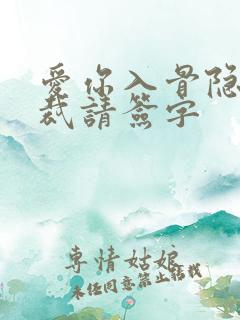 愛你入骨隐
裁請簽字
専情姑娘
未经同意禁止转载